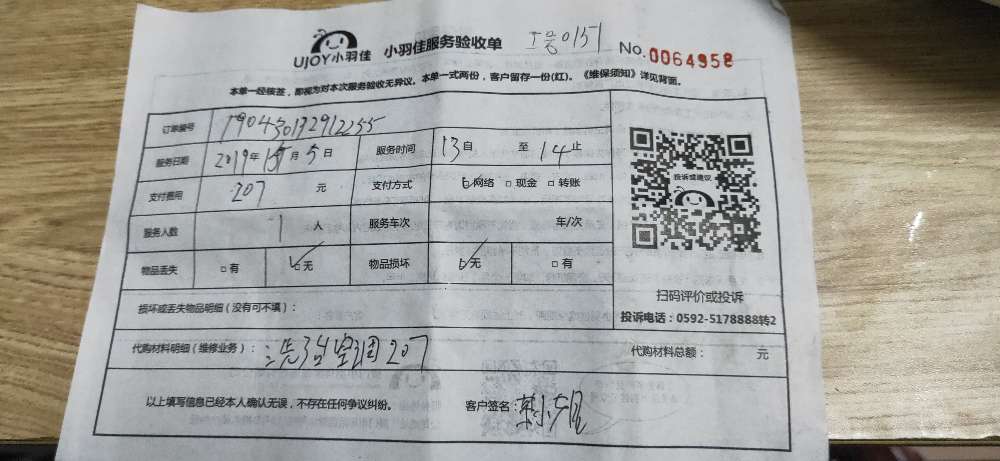 UJOY小羽佳 小羽佳服务验收单 0151 No.0064958
本单一经核签，即视为对本次服务验收无异议。本单一式两份，客户留存一份(红)。《维保须知》详见背面。
订单编号 190430132912255
服务日期 2019年 月5日 服务时间 13自 至14止
支付费用 207 元 支付方式 ☑网络 □现金 □转账
服务人数 1 人 服务车次 车/次
物品丢失 □有 ☑无 物品损坏 ☑无 □有
投诉或建议
扫码评价或投诉
投诉电话：0592-5178888转2
损坏或丢失物品明细（没有可不填）：
代购材料明细（维修业务）： 空调207 代购材料总额： 元
以上填写信息已经本人确认无误，不存在任何争议纠纷。 客户签名：